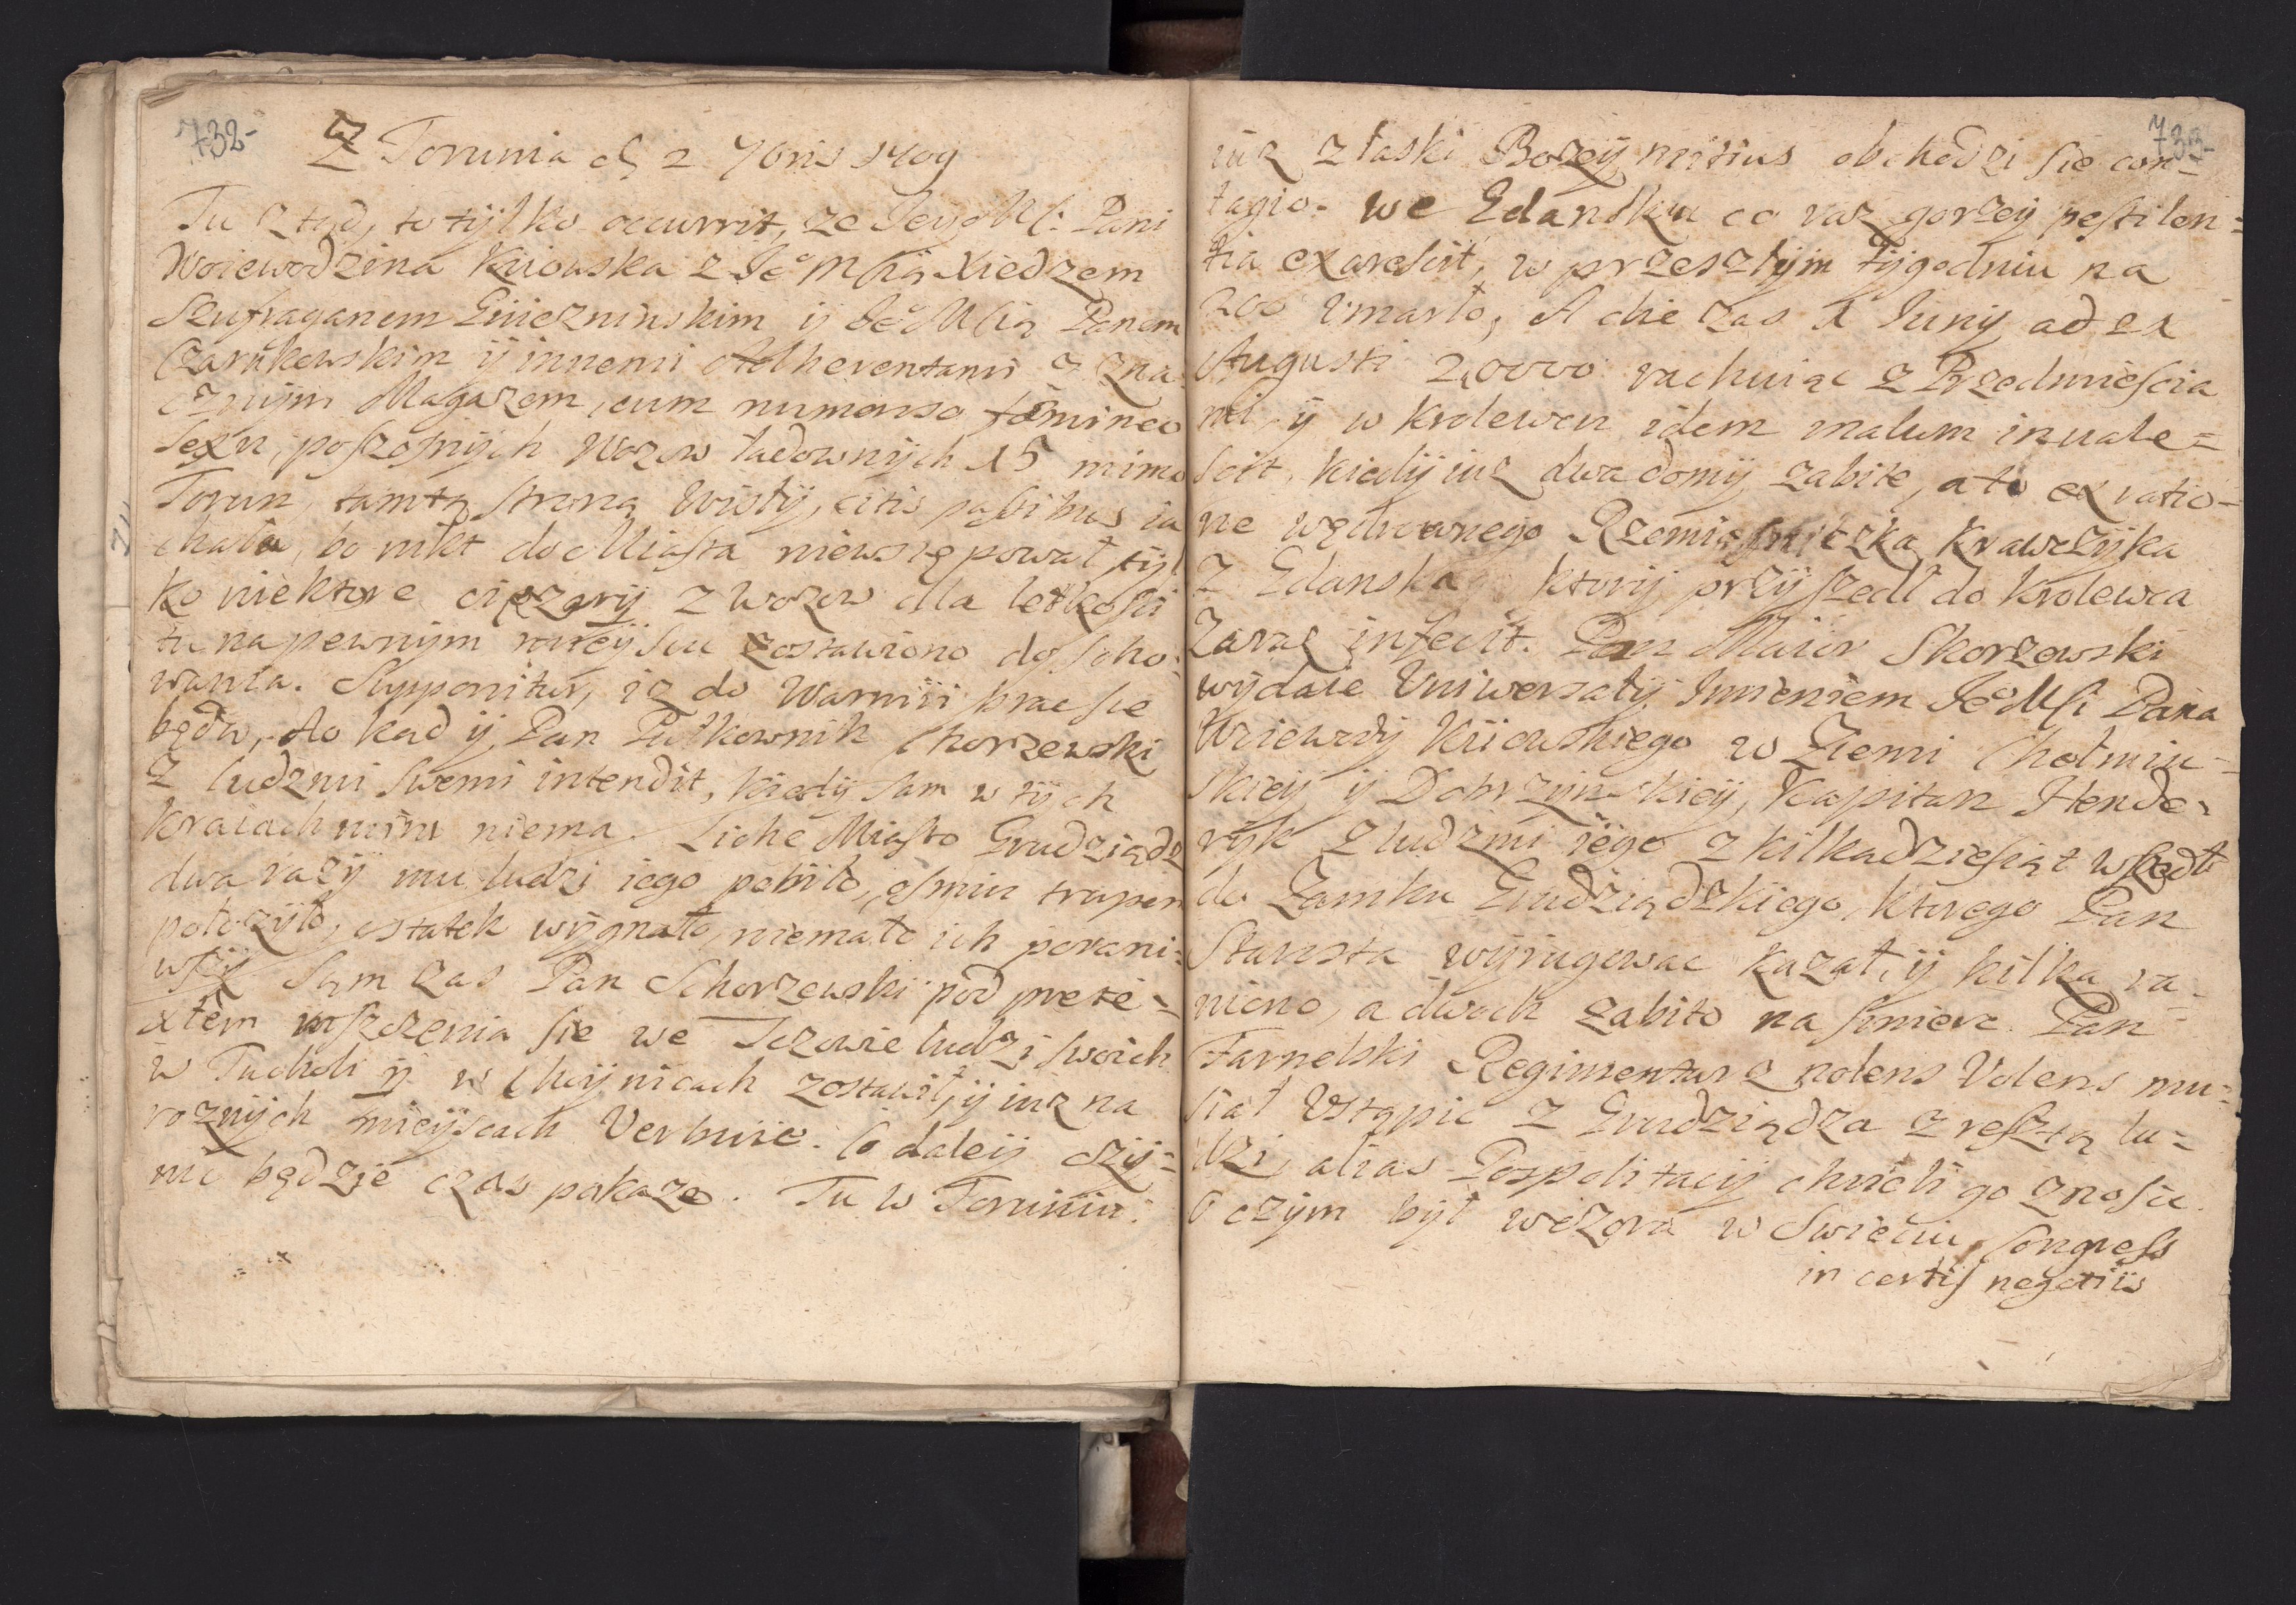 732-
Z Torunia d 2 7bris 1709
Tu ztąd, to tylko occurrit, ze Jeyo Mś: Pani
Woiewodzina Kiiowska z Je° Mśią Xiedzem
Szufraganem Gniezninskim ij Je° Mśią Panem
Czarnkowskim ij innemi Adherentami z zna-
cznijm Magazem, cum numeroso fœmineo
sexu, poszosnijch Wozow ładownijch 15 mimo
Torun, tamtą stroną Wisłij, citis passibus ia
chała, bo nikt do Miasta niewstępował, tijl
ko niektore ciężarij z wozow dla letkosci
tu na pewnijm mieijscu zostawiono do scho-
wania. Supponitur, iz do Warmii brac sie
będą, do kad ij Pan Pułkownik Chorzewski
z ludzmi swemi intendit, kiedij sam w tijch
kraiach miru niema. Liche Miasto Grudziądz
dwa razij mu ludzi iego pobiło, osmiu trupem
położijło, ostatek wijgnało, niemało ich porani-
wszij Sam zas Pan Schorzewski pod prete-
xtem wszczenia sie we Tczowie ludzi swoich
w Tucholi ij w Choijnicach zostawił, ij iuz na
roznijch mieijscach Verbuie. Co daleij czij-
nic będzie czas pokaze. Tu w Toruniu
733-
iuz z łaski Bozeij mitius obchodzi sie con-
tagio. we Gdansku co raz gorzeij pestilen-
tia exarescit, w przeszłijm tijgodniu na
200 Vmarło, A die zas 1 Junij ad 2x
Augusti 2,0000 rachuiąc z Przedmiescia
mi, ij w Krolewcu idem malum inuale-
scit, kiedij iuz dwa domij zabite, a to ex ratio-
ne wędrownego Rzemiesniczka Krawczijka
z Gdanska, ktorij przijszedł do Krolewca
Zaraz infecit. Pan Maior Skorzewski
wijdaie Vniwersałij Jmieniem Je° Mśi Pana
Woiewodij Kiiowskiego w Ziemi Chełmin-
skieij ij Dobrzijnskieij, Kapitan Hende-
rijk z ludzmi iego z kilkadziesiąt wszedł
do Zamku Grudziądzkiego, ktorego Pan
Starosta wijrugowac kazał, ij kilka ra-
niono, a dwoch zabito na smierc. Pan
Tarnelski Regimentarz nolens Volens mu-
siał Vstąpic z Grudziądza z resztą lu-
dzi, alias Pospolitacij chcieli go znosic.
O czijm bijł wczora w Swieciu Congress
in certis negotiis